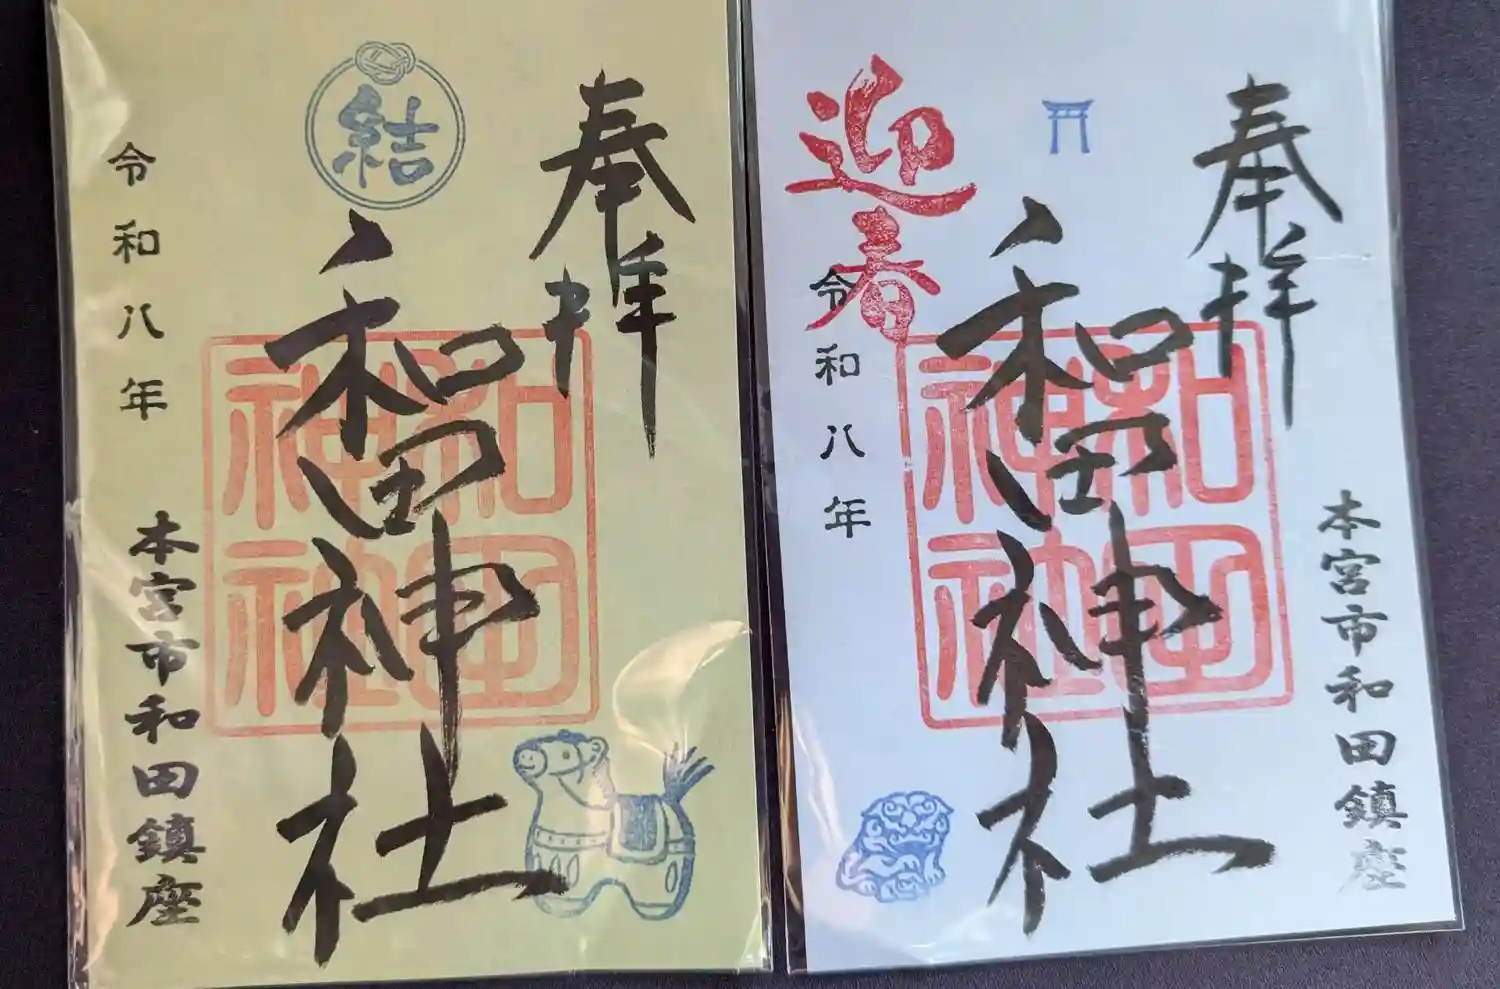 奉拝
結
和田神社
和田神社
令和八年
本宮市和田鎮座
奉拝
和田神社
和田神社
迎春
令和八年
本宮市和田鎮座